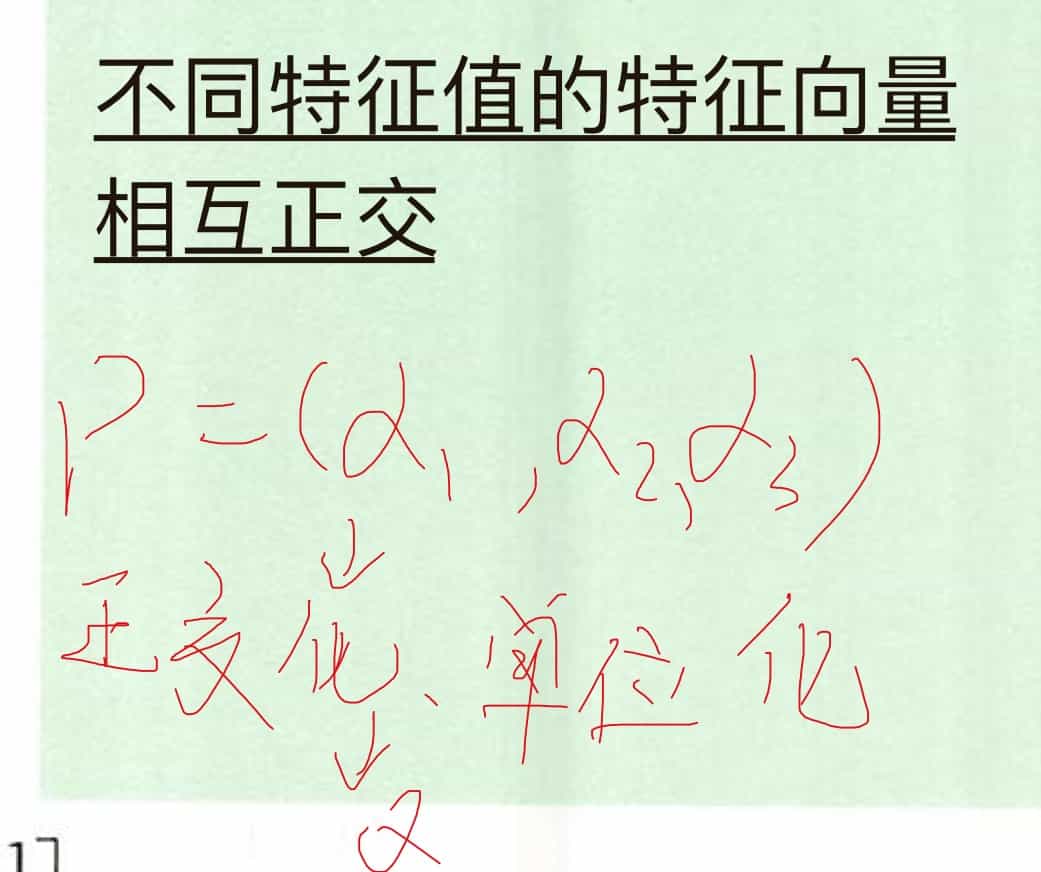 不同特征值的特征向量
相互正交
P=(α₁,α₂,α₃)
↓
正交化、单位化
↓
Q
17